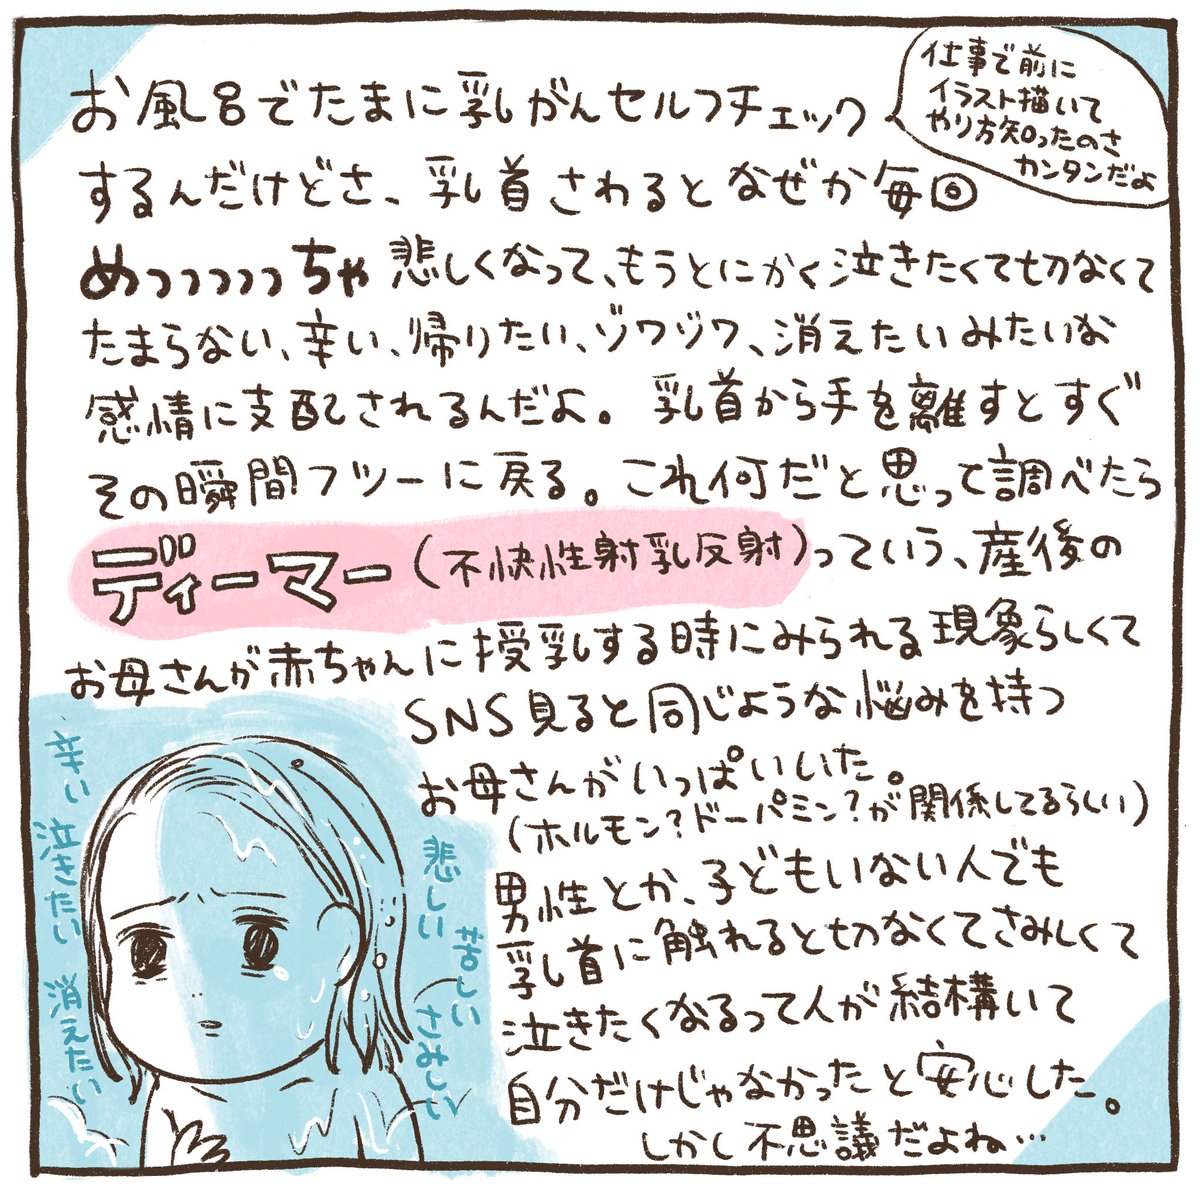 お風呂でたまに乳がんセルフチェック
仕事で前に
イラスト描いて
やり方知ったのさ
カンタンだよ
するんだけどさ、乳首さわるとなぜか毎回
めっっっっっちゃ悲しくなって、もうとにかく泣きたくて切なくて
たまらない、辛い、帰りたい、ゾワゾワ、消えたいみたいな
感情に支配されるんだよ。乳首から手を離すとすぐ
その瞬間フツーに戻る。これ何だと思って調べたら
ディーマー(不快性射乳反射)っていう、産後の
お母さんが赤ちゃんに授乳する時にみられる現象らしくて
SNS見ると同じような悩みを持つ
お母さんがいっぱいいた。
(ホルモン?ドーパミン?が関係してるらしい)
男性とか、子どもいない人でも
乳首に触れると切なくてさみしくて
泣きたくなるって人が結構いて
自分だけじゃなかったと安心した。
しかし不思議だよね…
辛い
泣きたい
消えたい
悲しい
苦しい
さみしい